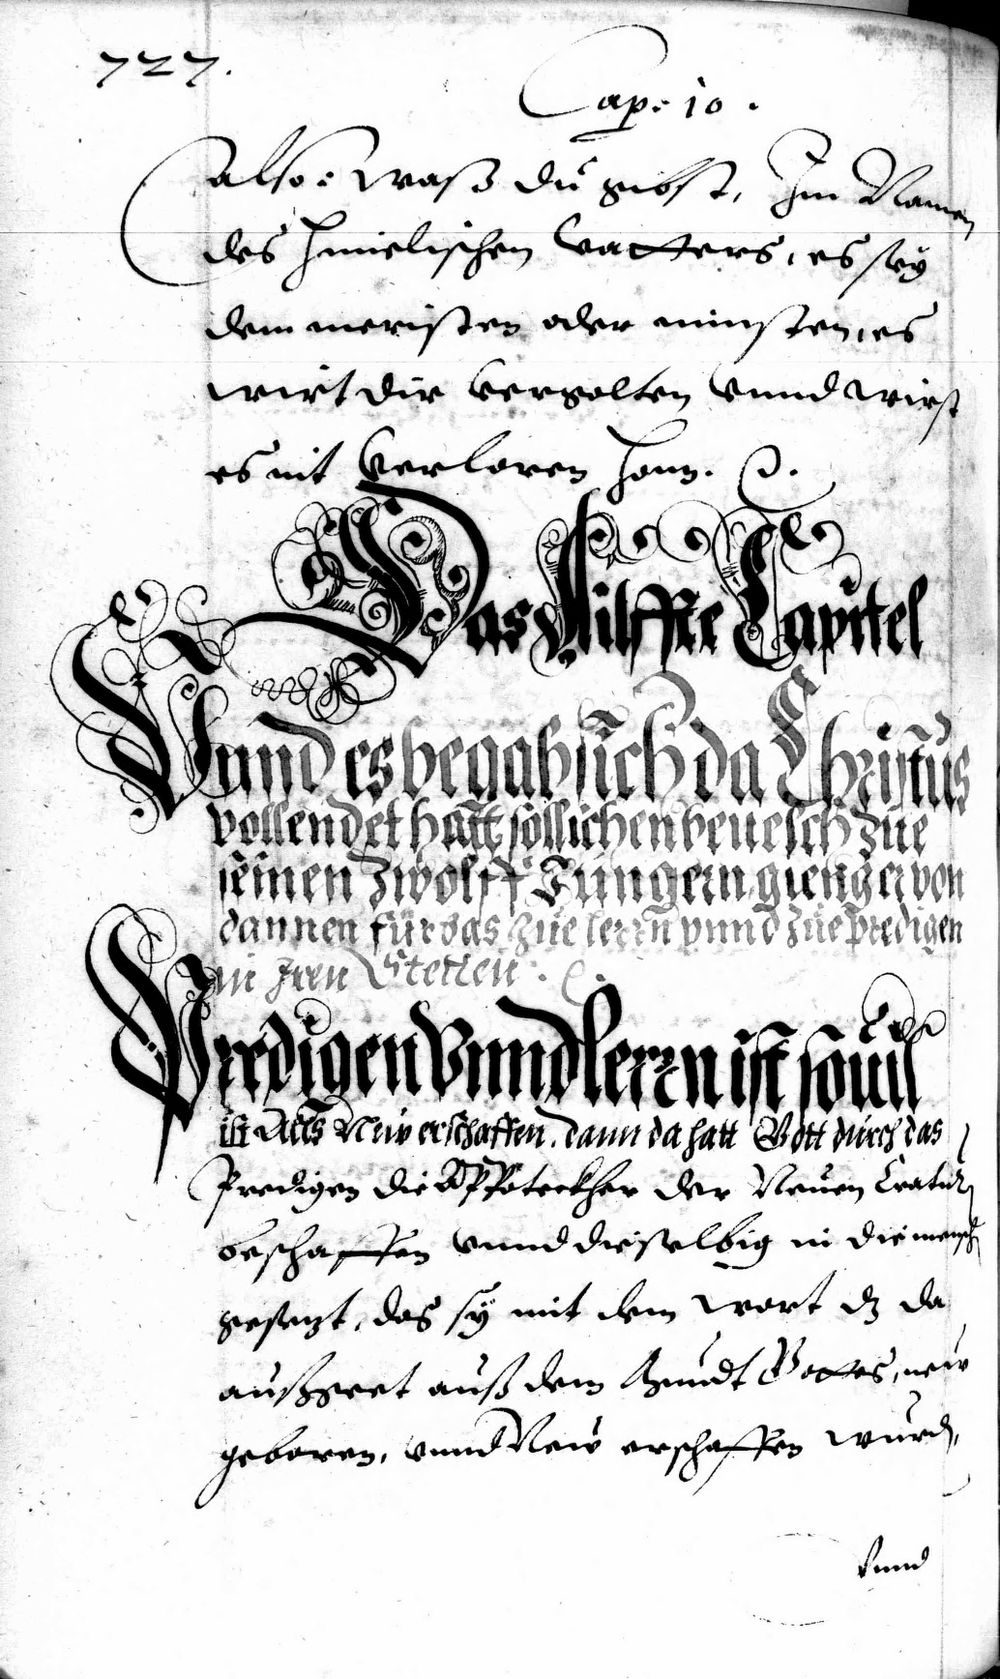 727.
Cap: 10.
also: waß du gibst, Im Namen
des himelischen Vatters, es sey
dem meristen oder minsten, es
wirt dir vergolten vnnd wirst
es nit verloren hann. etc.
Das Ailffte Capitel
Vnnd es begab sich da Christus
vollendet hatt söllichen beuelch zue
seinen zwölff Jüngern, gieng er von
dannen fürbas zue lerrn vnnd zue predigen
in Iren Stetten. etc.
Predigen vnnd lerrn ist souil
ist Alls New erschaffen. dann da hatt Gott durch das
Predigen die Appoteckher der Neuen Creatur
beschaffen vnnd dieselbig in die mensch
gesetzt, das sy mit dem wort dz da
außgeet auß dem mundt Gottes, new
geboren, vnnd New erschaffen wurd,
Vnnd